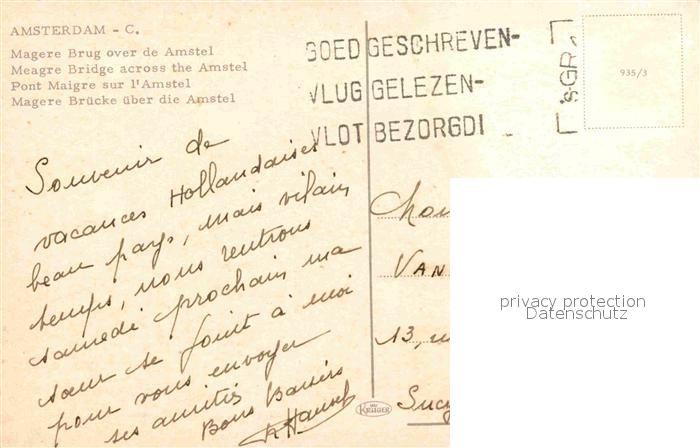 AMSTERDAM - C.
Magere Brug over de Amstel
Meagre Bridge across the Amstel
Pont Maigre sur l'Amstel
Magere Brücke über die Amstel
GOED GESCHREVEN-
VLUG GELEZEN-
VLOT BEZORGD!
'S-GR
935/3
Souvenir de
vacances Hollandaises
beau pays, mais vilain
temps, nous rentrons
samedi prochain ma
sœur se joint à moi
pour vous envoyer
ses amitiés
Bons Baisers
VAN
13,
Sucy
KRÜGER
privacy protection
Datenschutz